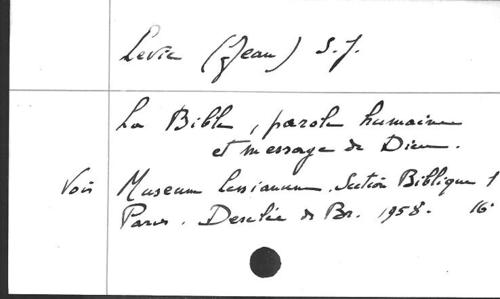 Levie (Jean) S.J.
La Bible, parole humaine
et message de Dieu.
Voir Museum Lessianum. Section Biblique 1
Paris. Desclée de Br. 1958. 16°